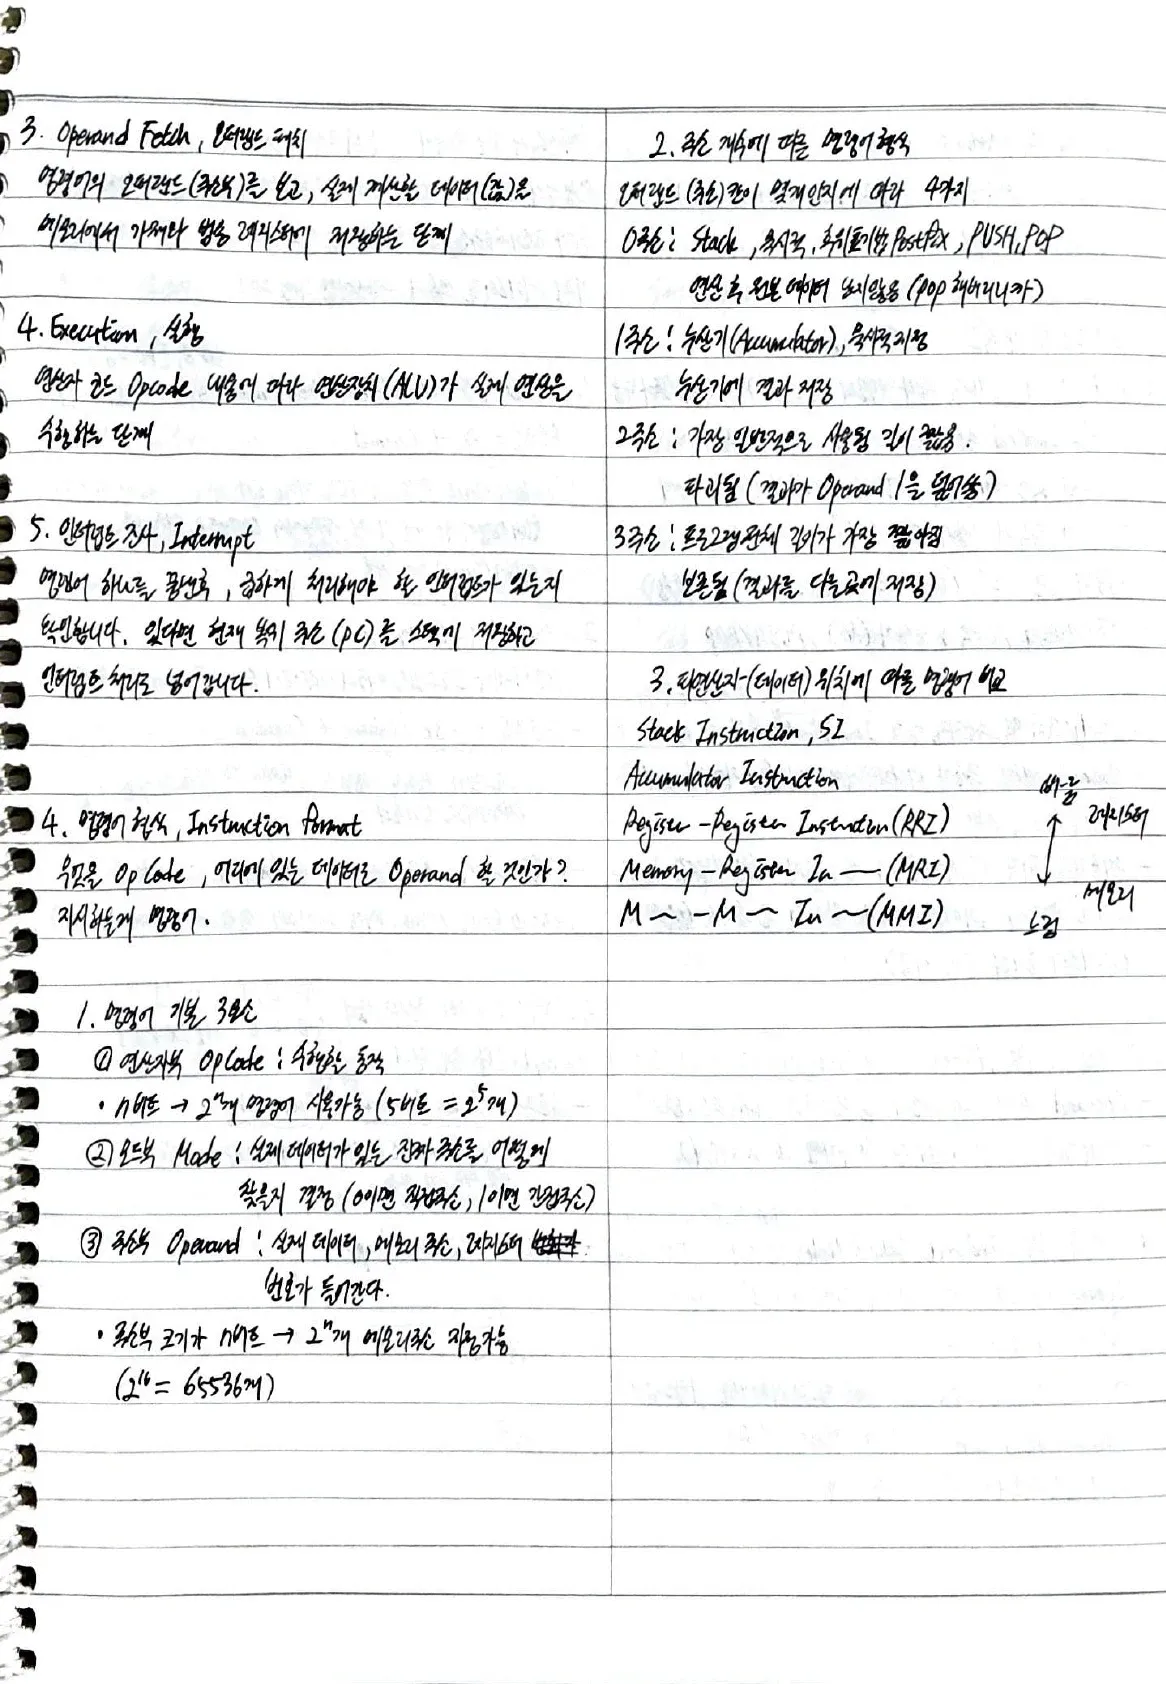 3. Operand Fetch, 오퍼랜드 패치
명령어의 오퍼랜드(주소부)를 보고, 실제 계산할 데이터(값)을
메모리에서 가져와 범용 레지스터에 저장하는 단계
4. Execution, 실행
연산자 코드 Opcode 내용에 따라 연산장치(ALU)가 실제 연산을
수행하는 단계
5. 인터럽트 조사, Interrupt
명령어 하나를 끝낸후, 급하게 처리해야 할 인터럽트가 있는지
확인합니다. 있다면 현재 복귀 주소(PC)를 스택에 저장하고
인터럽트 처리로 넘어갑니다.
4. 명령어 형식, Instruction Format
무엇을 OpCode, 어디에 있는 데이터로 Operand 할 것인가?
지시하는게 명령어.
1. 명령어 기본 3요소
① 연산자부 OpCode : 수행할 동작
• n비트 → 2ⁿ개 명령어 사용가능 (5비트 = 2⁵개)
② 모드부 Mode : 실제 데이터가 있는 진짜 주소를 어떻게
찾을지 결정 (0이면 직접주소, 1이면 간접주소)
③ 주소부 Operand : 실제 데이터, 메모리 주소, 레지스터
번호가 들어간다.
• 주소부 크기가 n비트 → 2ⁿ개 메모리주소 지정가능
(2¹⁶ = 65536개)
2. 주소 개수에 따른 명령어 형식
오퍼랜드 (주소)칸이 몇개인지에 따라 4가지
0주소 : Stack, 묵시적, 후위표기법 Postfix, PUSH, POP
연산 후 원본 데이터 남지않음 (pop 해버리니까)
1주소 : 누산기(Accumulator), 묵시적지정
누산기에 결과 저장
2주소 : 가장 일반적으로 사용됨 길이 짧음.
파괴됨 (결과가 Operand 1을 덮어씀)
3주소 : 프로그램전체 길이가 가장 짧아짐
보존됨 (결과를 다른곳에 저장)
3. 피연산자-(데이터) 위치에 따른 명령어 비교
Stack Instruction, SI
Accumulator Instruction
빠름
Register - Register Instruction (RRI) 레지스터
Memory - Register In ~ (MRI)
메모리
M ~ - M ~ In ~ (MMI) 느림